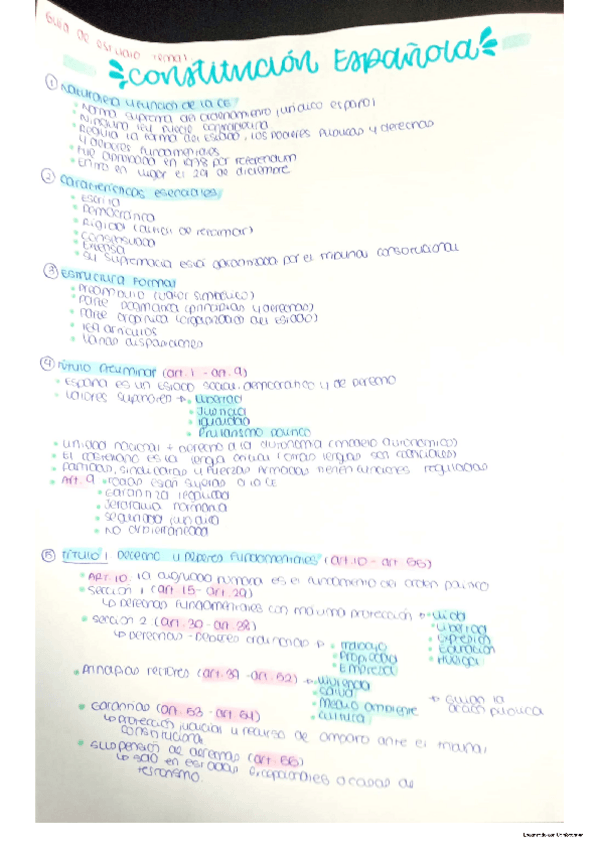 Guia de estudio Tema 1
Constitución Española
① Naturaleza y función de la CE
• Norma suprema del ordenamiento jurídico español
• Ninguna ley puede contradecirla
• Regula la forma del Estado, los poderes públicos y derechos
y deberes fundamentales
• Fue aprobada en 1978 por referendum
• Entró en vigor el 29 de diciembre
② Características esenciales
• Escrita
• Democrática
• Rígida (difícil de reformar)
• Consensuada
• Extensa
• Su supremacía está garantizada por el tribunal constitucional
③ Estructura Formal
• Preámbulo (valor simbólico)
• Parte dogmática (principios y derechos)
• Parte orgánica (organización del Estado)
• 169 artículos
• Varias disposiciones
④ Título Preliminar (art. 1 - art. 9)
• España es un Estado social, democrático y de derecho
• Valores superiores → Libertad
• Justicia
• Igualdad
• Pluralismo político
• Unidad nacional + derecho a la autonomía (modelo autonómico)
• El castellano es la lengua oficial (otras lenguas son cooficiales)
• Partidos, sindicatos y Fuerzas Armadas tienen funciones reguladas
• Art. 9 • Todos están sujetos a la CE
• Garantiza legalidad
• Jerarquía normativa
• Seguridad jurídica
• No arbitrariedad
⑤ Título I Derechos y Deberes Fundamentales (art. 10 - art. 55)
• ART. 10. La dignidad humana es el fundamento del orden político
• Sección 1 (art. 15 - art. 29)
↳ Derechos fundamentales con máxima protección → • Vida
• Libertad
• Expresión
• Educación
• Huelga
• Sección 2 (art. 30 - art. 38)
↳ Derechos - deberes ciudadanos → • Trabajo
• Propiedad
• Empresa
• Principios rectores (art. 39 - art. 52) → • Vivienda
• Salud
• Medio ambiente
• Cultura
→ Guían la
acción pública
• Garantías (art. 53 - art. 54)
↳ Protección judicial y recurso de amparo ante el tribunal
constitucional
• Suspensión de derechos (art. 55)
↳ Sólo en estados excepcionales o casos de
terrorismo.